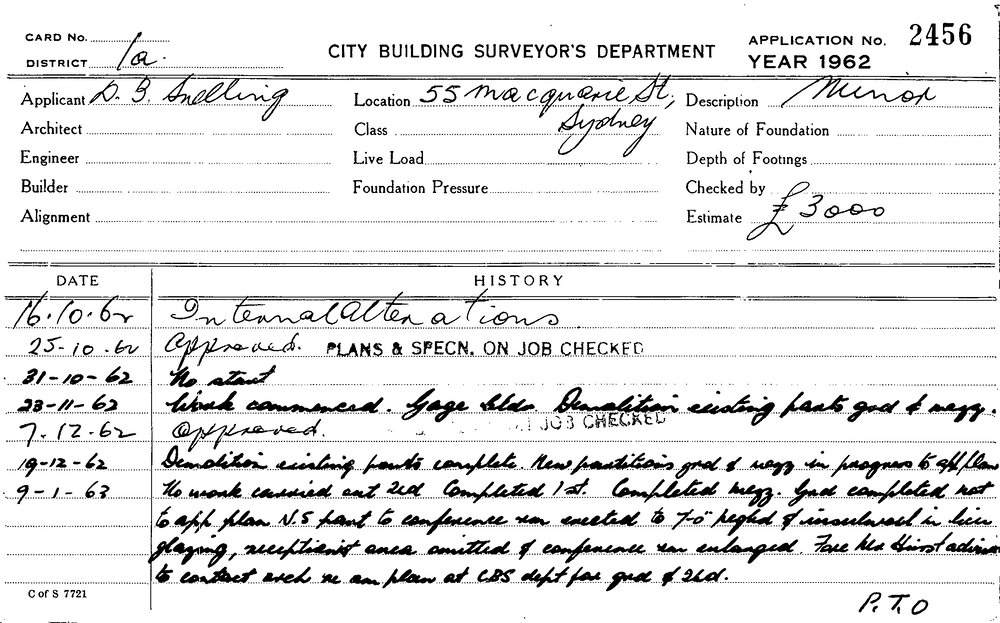 CARD No.
DISTRICT 1a.
CITY BUILDING SURVEYOR'S DEPARTMENT
APPLICATION No. 2456
YEAR 1962
Applicant D. B. Snelling Location 55 Macquarie St, Description Minor
Sydney
Architect Class Nature of Foundation
Engineer Live Load Depth of Footings
Builder Foundation Pressure Checked by
Alignment Estimate £3000
DATE HISTORY
16.10.62 Internal Alterations.
25-10.62 Approved. PLANS & SPECN. ON JOB CHECKED
31-10-62 No start
23-11-62 Work commenced. Gage bldr. Demolition existing parts grd & mezz.
7.12.62 Approved. JOB CHECKED
19-12-62 Demolition existing parts complete. New partitions grd & mezz in progress to app plan
9-1-63 No work carried out 2nd Completed 1st. Completed mezz. Grd completed not
to app plan N.S part to conference rm erected to 7'0" & in lieu
glazing, receptionist area omitted & conference rm enlarged. Fore Mr Hirst
to contact arch re am plan at CBS dept for grd & 2nd.
C of S 7721
P.T.O